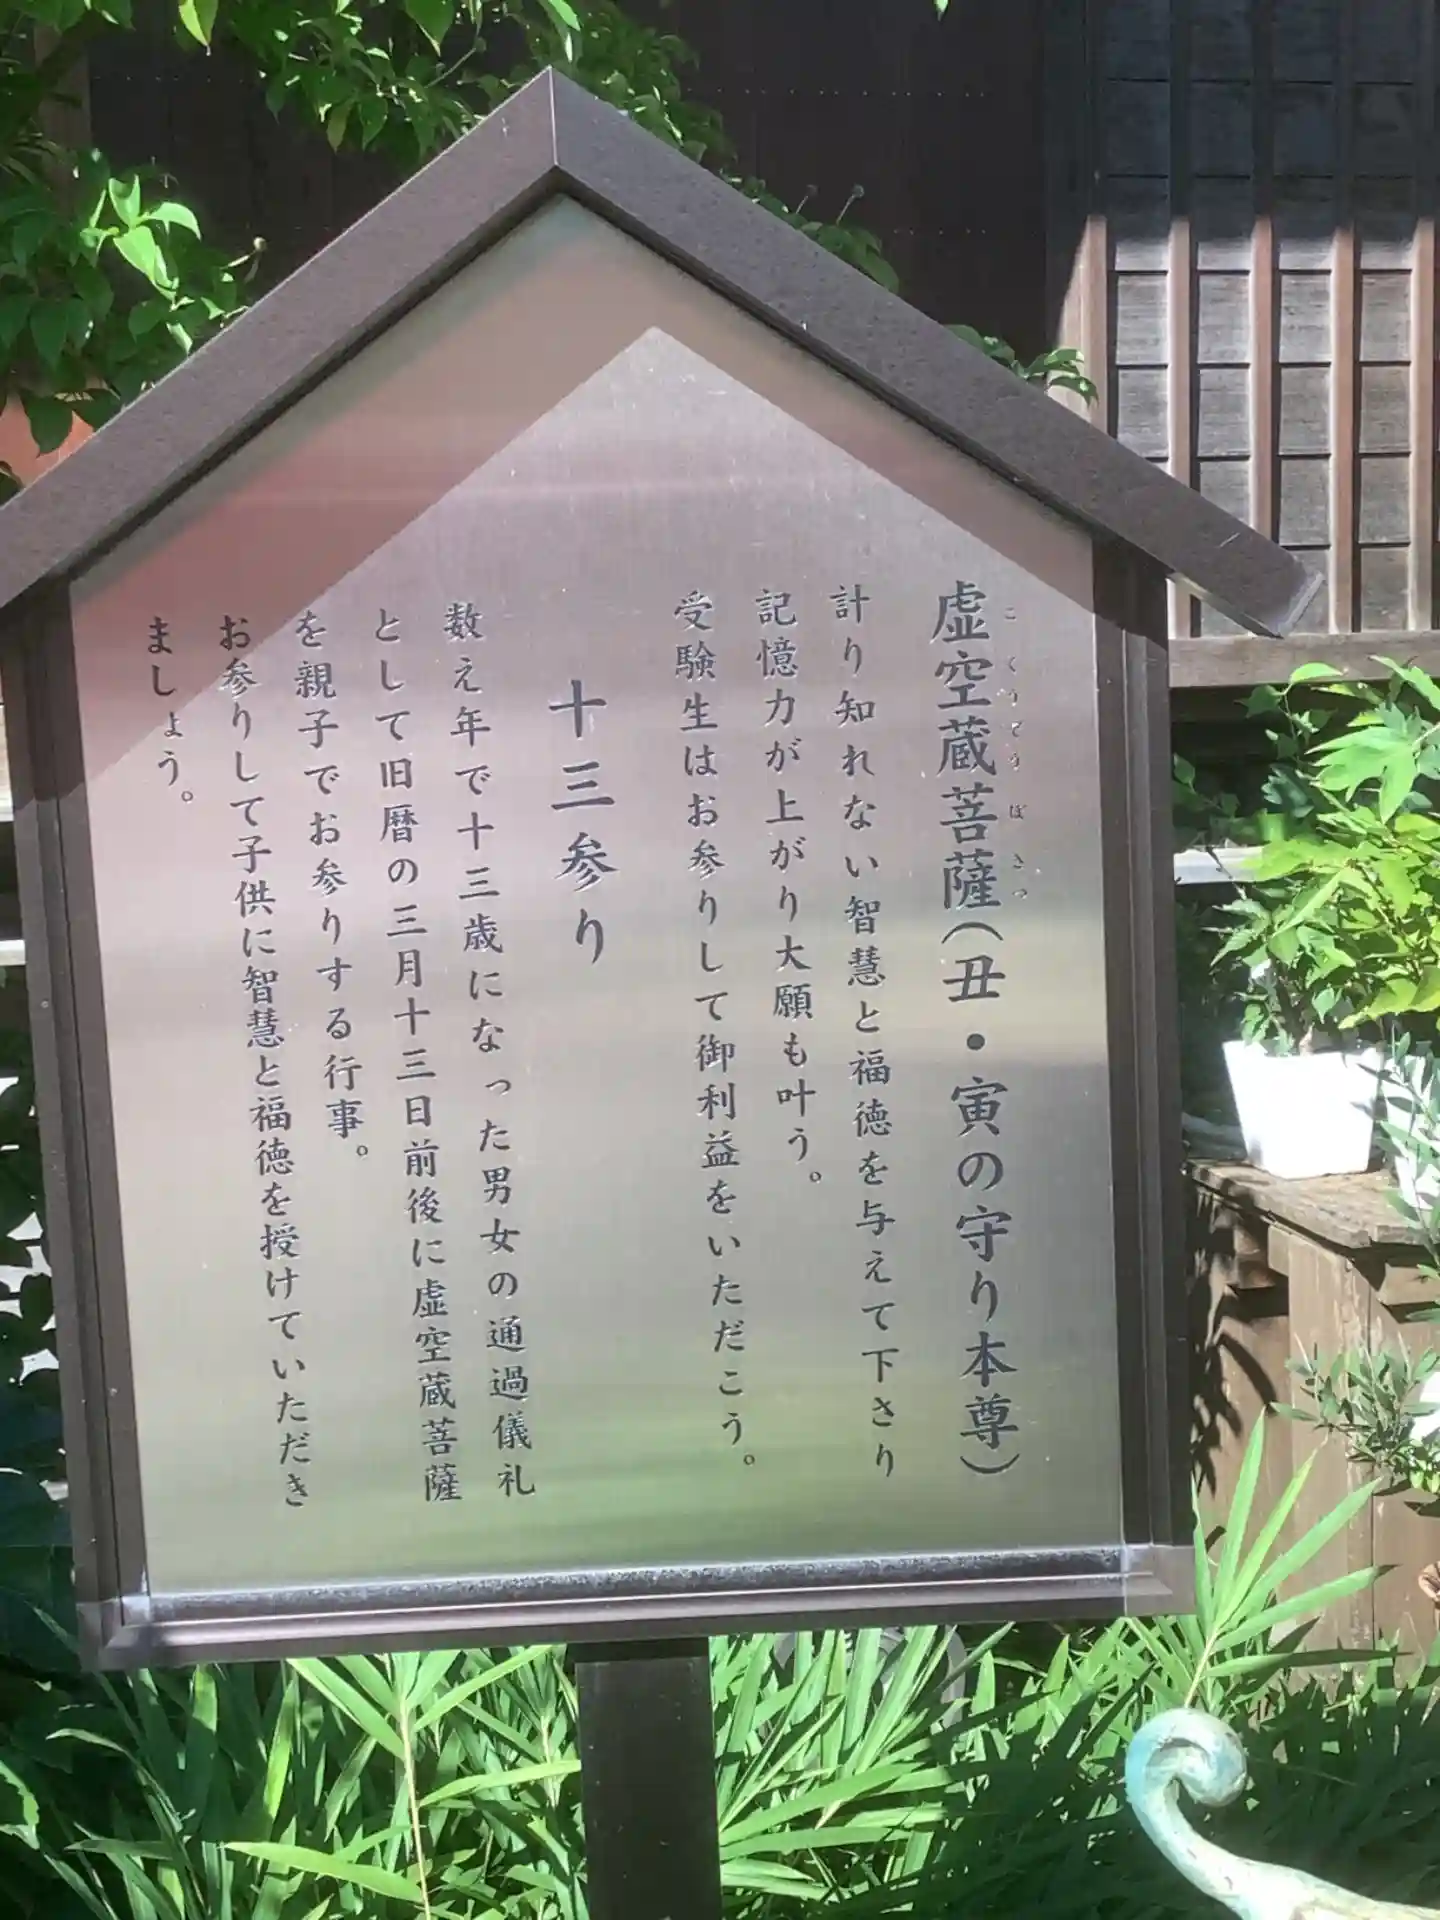 虚空蔵菩薩（丑・寅の守り本尊）
こくうぞうぼさつ
計り知れない智慧と福徳を与えて下さり
記憶力が上がり大願も叶う。
受験生はお参りして御利益をいただこう。
十三参り
数え年で十三歳になった男女の通過儀礼
として旧暦の三月十三日前後に虚空蔵菩薩
を親子でお参りする行事。
お参りして子供に智慧と福徳を授けていただき
ましょう。